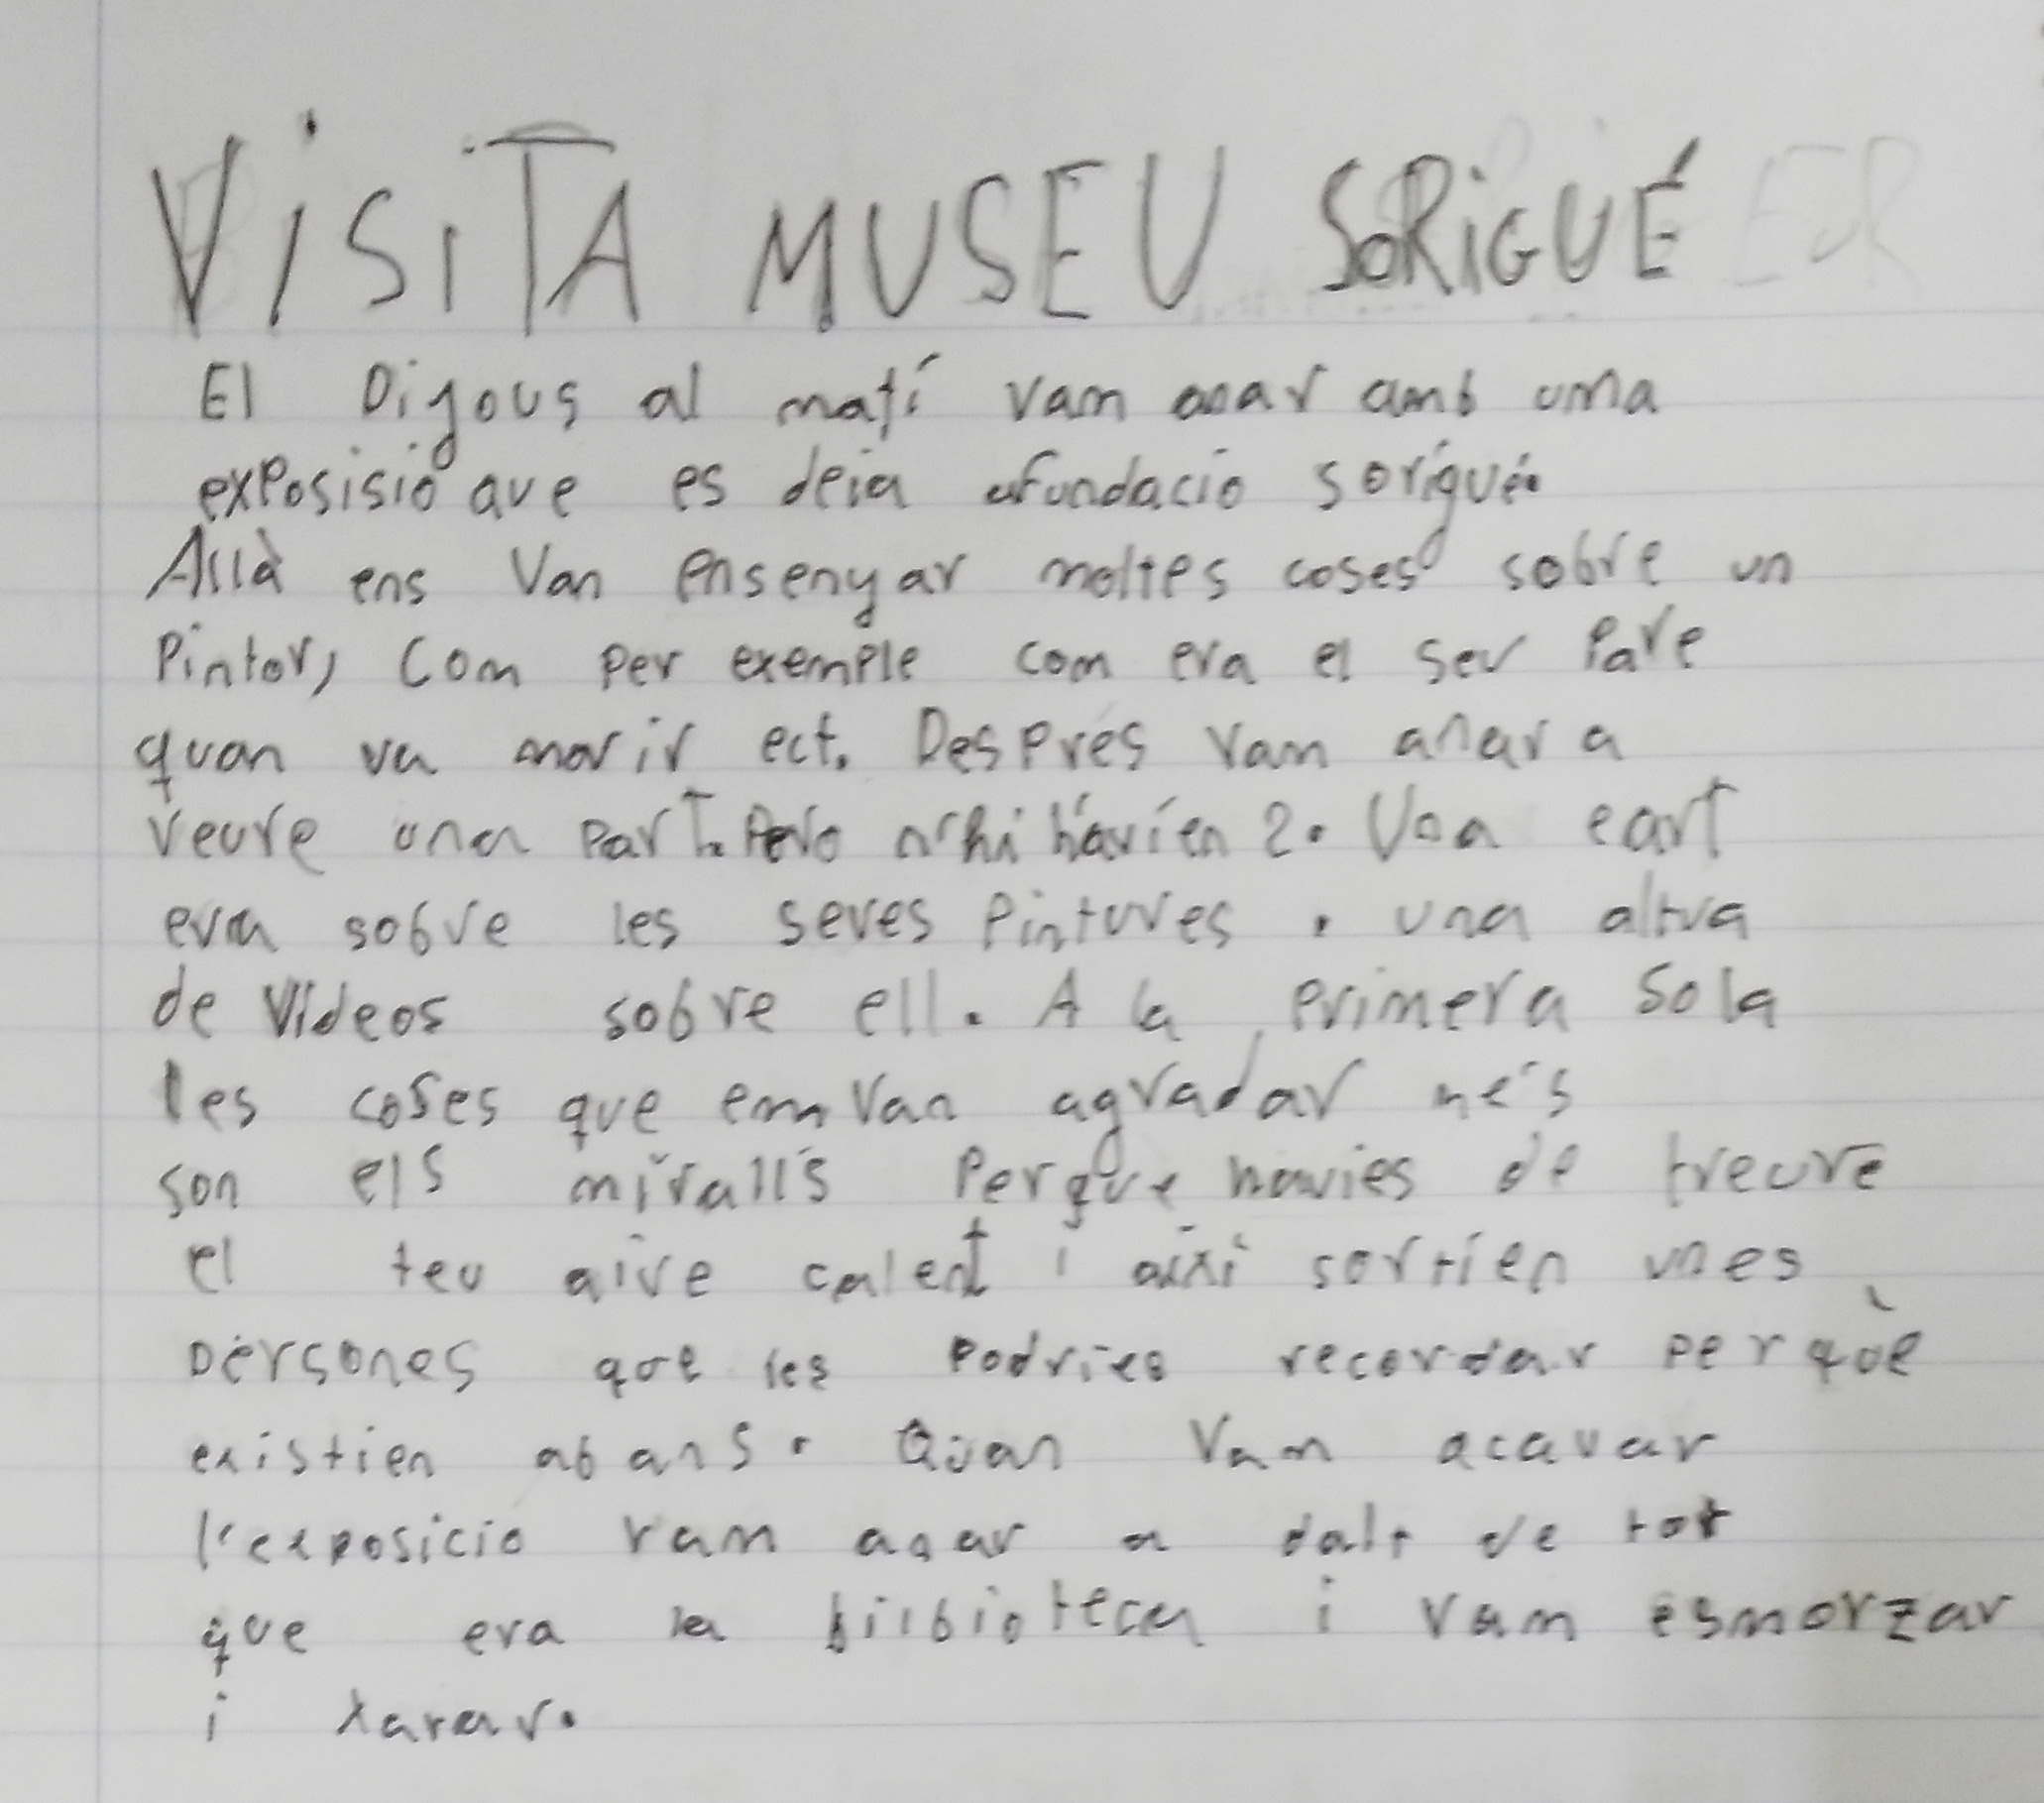 VISITA MUSEU SORIGUÉ
El Dijous al matí vam anar amb una
exposisio que es deia fundacio sorigué.
Allà ens van ensenyar moltes coses sobre un
Pintor, Com per exemple com era el seu Pare
quan va morir ect. Després vam anar a
veure una part. Pero n'hi havíen 2. Una part
era sobre les seves Pintures. una altra
de Vídeos sobre ell. A la primera sala
les coses que em van agradar més
son els miralls Perque havies de treure
el teu aire calent i així sortíen unes
persones que les podries recordar perquè
existien abans. Quan vam acavar
l'exposicio vam anar a dalt de tot
que era la bilbioteca i vam esmorzar
i xarar.